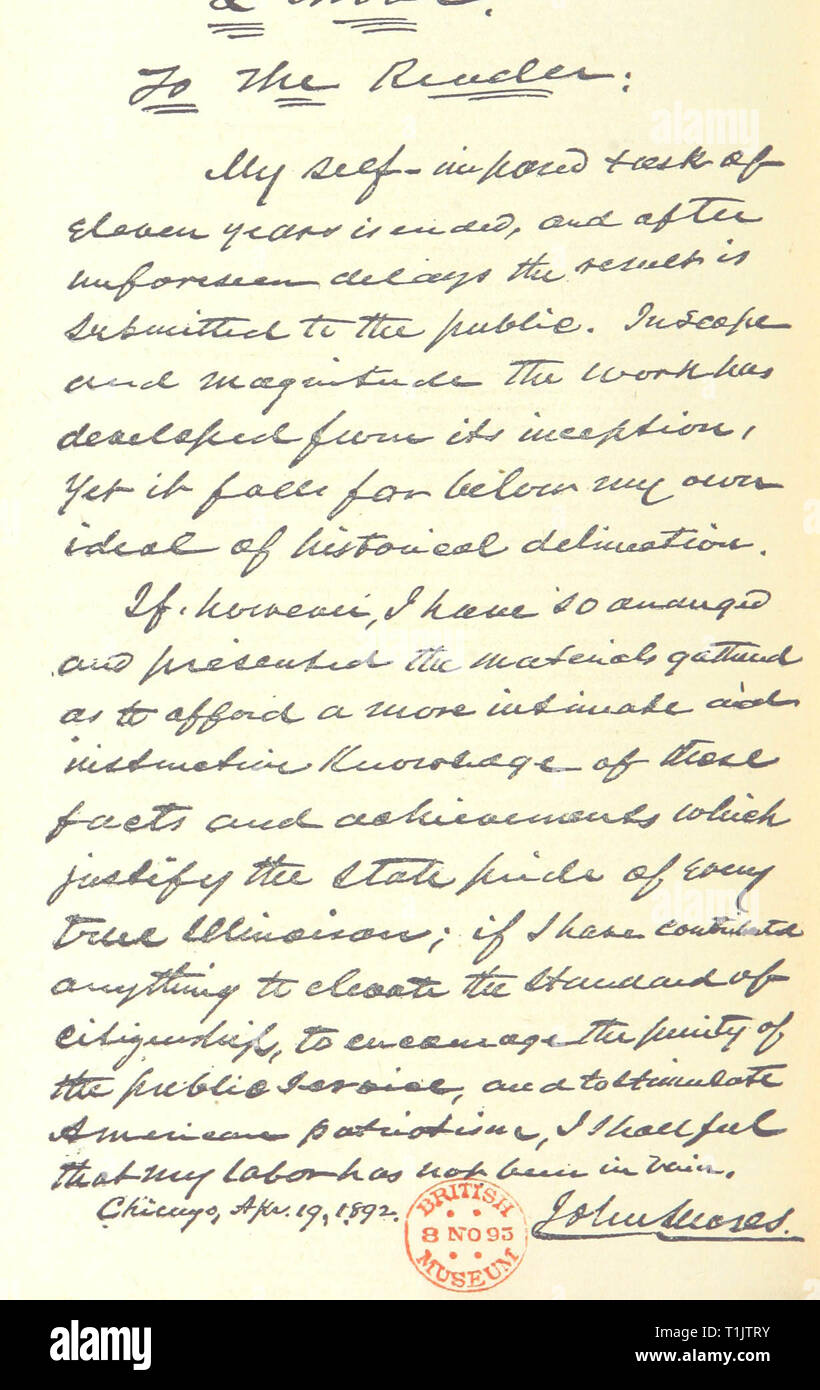 To The Reader:
My self-imposed task of
eleven years is ended, and after
unforeseen delays the result is
submitted to the public. In scope
and magnitude the work has
developed from its inception,
yet it falls far below my own
ideal of historical delineation.
If, however, I have so arranged
and presented the materials gathered
as to afford a more intimate and
instructive knowledge of those
facts and achievements which
justify the State pride of every
true Illinoisan; if I have contributed
anything to elevate the standard of
citizenship, to encourage the purity of
the public service, and to stimulate
American patriotism, I shall feel
that my labor has not been in vain.
Chicago, Apr. 19, 1892.
John Moses.
BRITISH
8 NO 95
MUSEUM
alamy
alamy
alamy
a
a
a
alamy
Image ID: T1JTRY
www.alamy.com